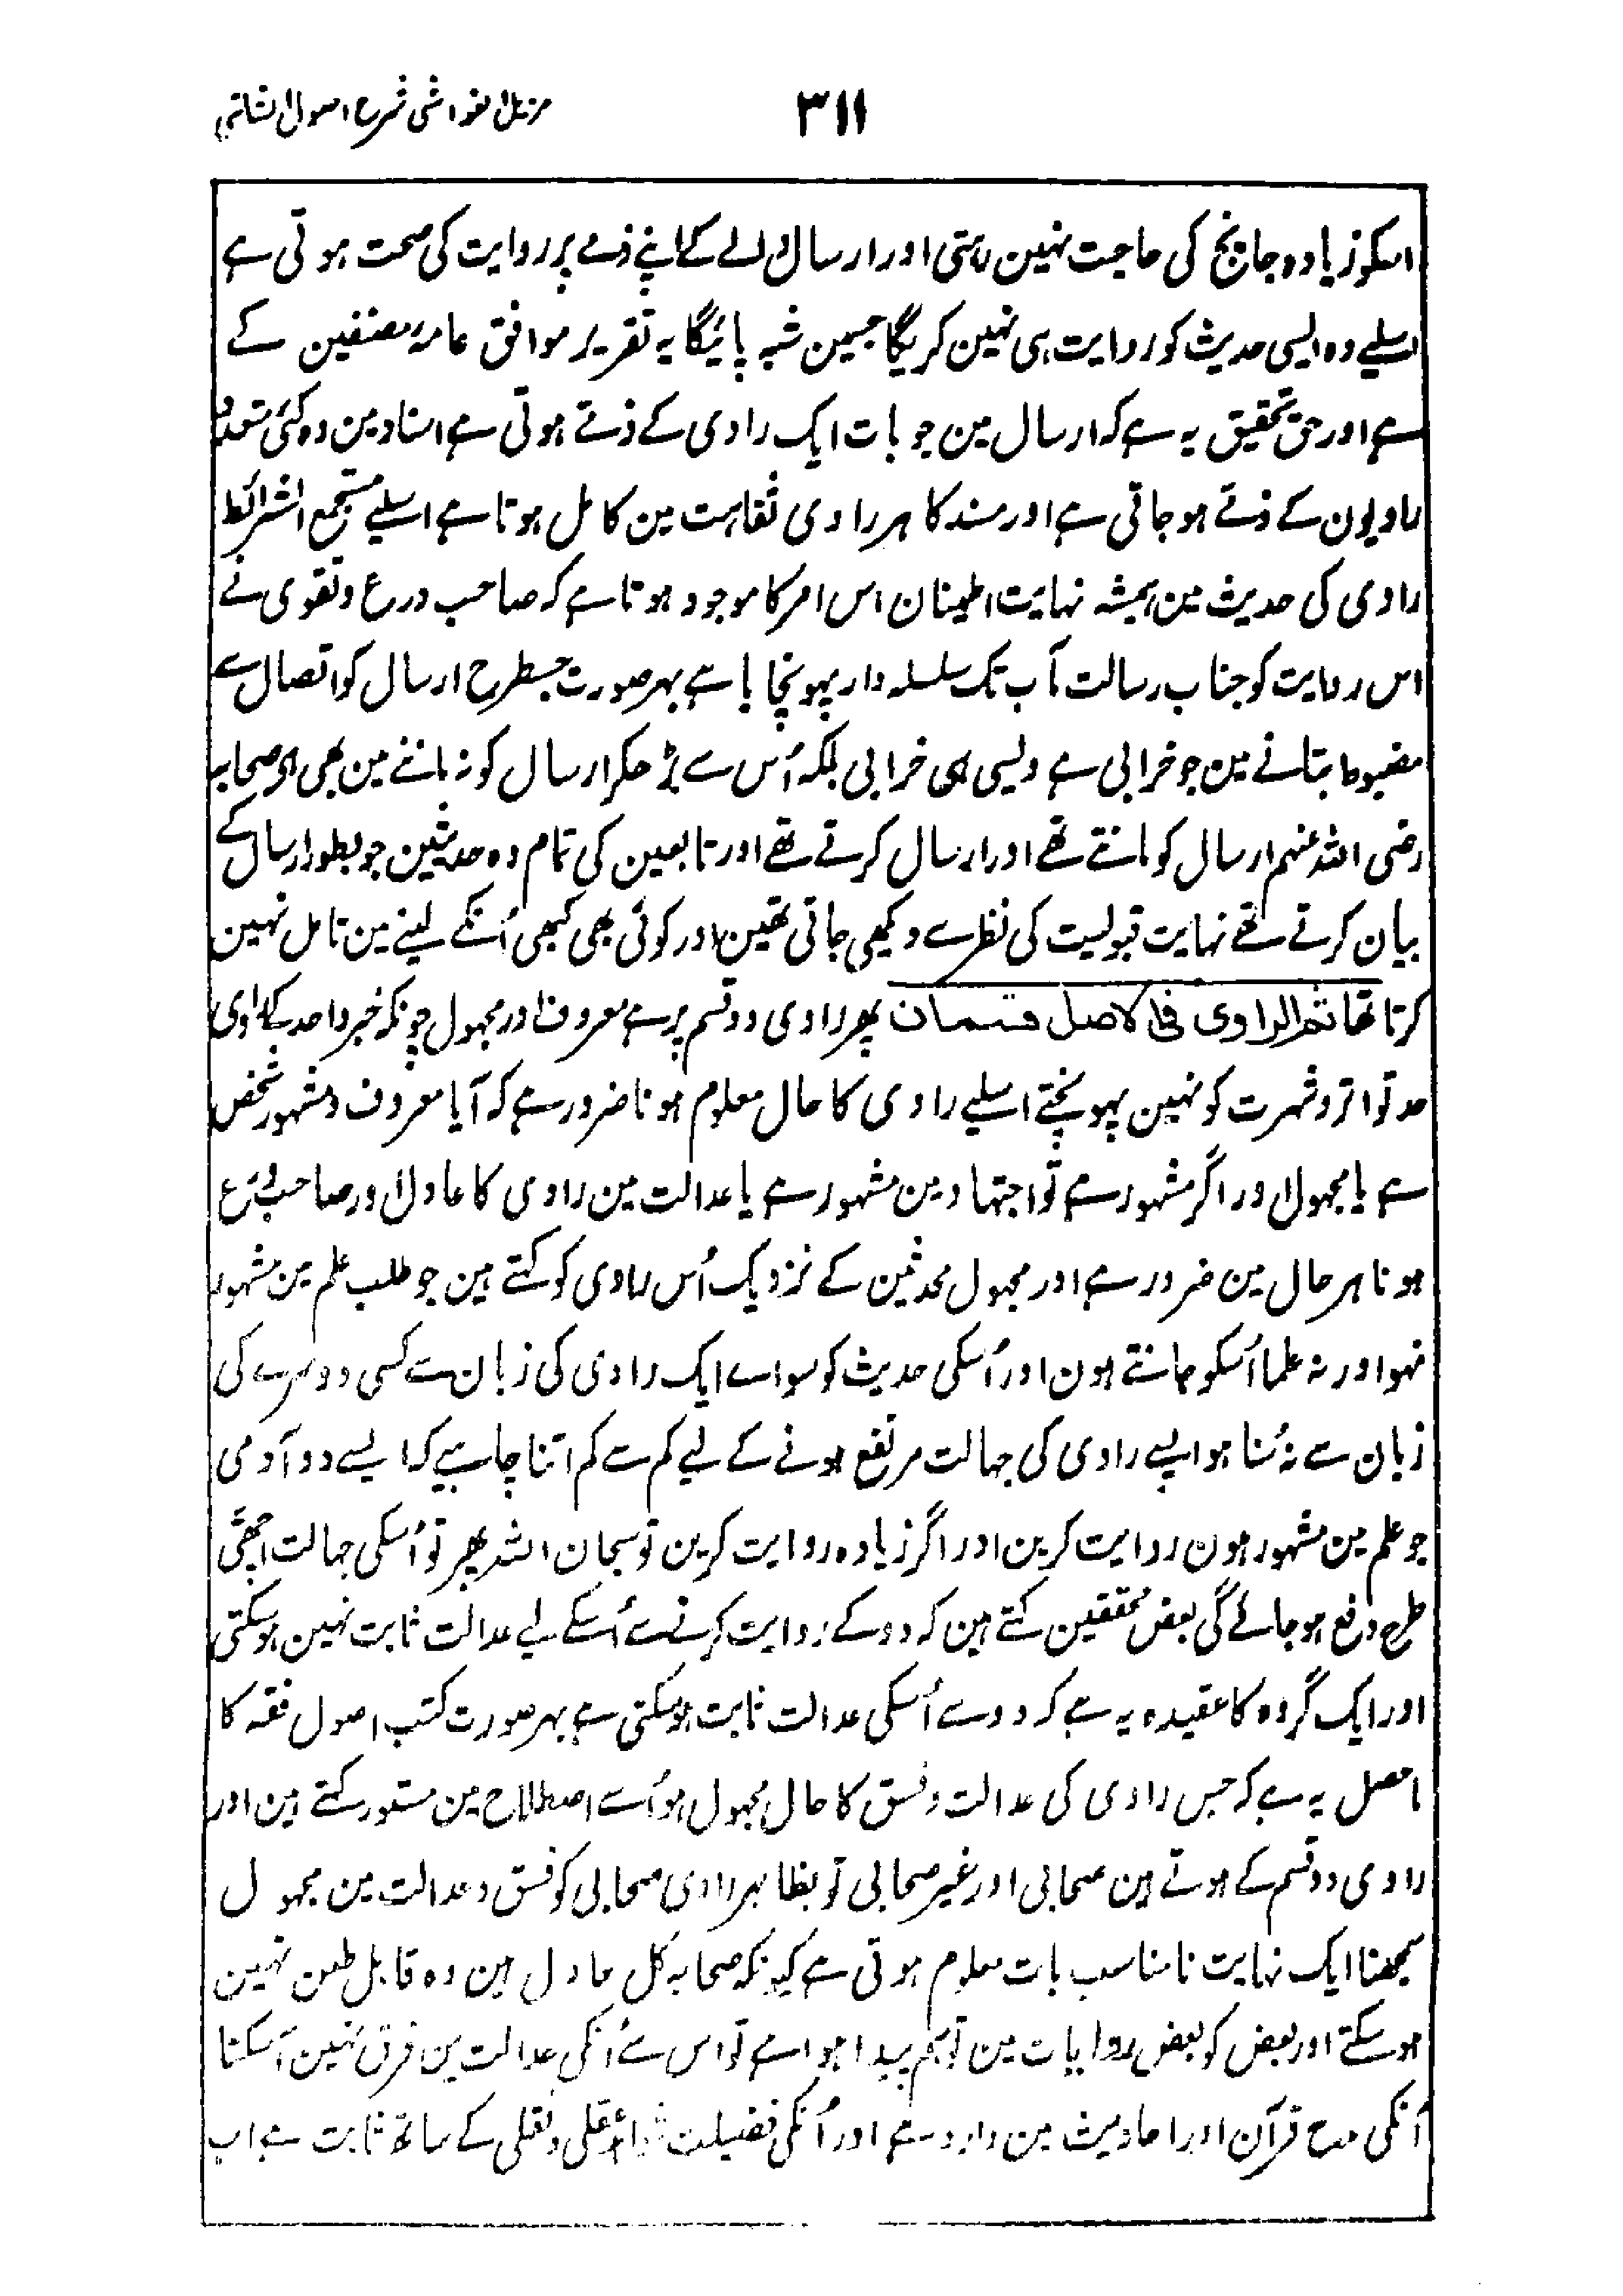 مزیل الغواشی شرح اصول الشاشی
۳۱۱
اسکو زیادہ جانچ کی حاجت نہین رہتی اور ارسال والے کے اپنے ذمے پر روایت کی صحت ہوتی ہے
اسلیے وہ ایسی حدیث کو روایت ہی نہین کریگا جسمین شبہ پائیگا یہ تقریر موافق عامہ مصنفین کے
ہے اور حق تحقیق یہ ہے کہ ارسال مین جو بات ایک راوی کے ذمے ہوتی ہے اسناد مین وہ کئی متعدد
راویون کے ذمے ہو جاتی ہے اور مسند کا ہر راوی ثقاہت مین کامل ہوتا ہے اسلیے مستجمع الشرائط
راوی کی حدیث مین ہمیشہ نہایت اطمینان اس امر کا موجود ہوتا ہے کہ صاحب ورع و تقوی نے
اس روایت کو جناب رسالت مآب تک سلسلہ وار پہونچایا ہے بہر صورت جسطرح ارسال کو اتصال سے
مضبوط بتانے مین جو خرابی ہے ویسی ہی خرابی بلکہ اُس سے بڑھکر ارسال کو نہ ماننے مین بھی ہے صحابہ
رضی اللہ عنہم ارسال کو مانتے تھے اور ارسال کرتے تھے اور تابعین کی تمام وہ حدیثین جو بطور ارسال کے
بیان کرتے تھے نہایت قبولیت کی نظر سے دیکھی جاتی تھین اور کوئی بھی کبھی اُنکے لینے مین تامل نہین
کرتا تھا ثم الراوی فی الاصل قسمان پھر راوی دو قسم پر ہے معروف اور مجہول چونکہ خبر واحد کے راوی
حد تواتر و شہرت کو نہین پہونچتے اسلیے راوی کا حال معلوم ہونا ضرور ہے کہ آیا معروف و مشہور شخص
ہے یا مجہول اور اگر مشہور ہے تو اجتہاد مین مشہور ہے یا عدالت مین راوی کا عادل اور صاحب ورع
ہونا ہر حال مین ضرور ہے اور مجہول محدثین کے نزدیک اُس راوی کو کہتے ہین جو طلب علم مین مشہور
نہو اور نہ علما اُسکو جانتے ہون اور اُسکی حدیث کو سواے ایک راوی کی زبان سے کسی دوسرے کی
زبان سے نہ سُنا ہو ایسے راوی کی جہالت مرتفع ہونے کے لیے کم سے کم اتنا چاہیے کہ ایسے دو آدمی
جو علم مین مشہور ہون روایت کرین اور اگر زیادہ روایت کرین تو سبحان اللہ پھر تو اُسکی جہالت اچھی
طرح رفع ہو جائے گی بعض محققین کہتے ہین کہ دو کے روایت کرنے سے اُسکے لیے عدالت ثابت نہین ہو سکتی
اور ایک گروہ کا عقیدہ یہ ہے کہ دو سے اُسکی عدالت ثابت ہو سکتی ہے بہر صورت کتب اصول فقہ کا
ماحصل یہ ہے کہ جس راوی کی عدالت و فسق کا حال مجہول ہو اُسے اصطلاح مین مستور کہتے ہین اور
راوی دو قسم کے ہوتے ہین صحابی اور غیر صحابی تو بظاہر راوی صحابی کو فسق و عدالت مین مجہول
سمجھنا ایک نہایت نامناسب بات معلوم ہوتی ہے کیونکہ صحابہ کل عادل ہین وہ قابل طعن نہین
ہو سکتے اور بعض کو بعض روایات مین توہم پیدا ہوا ہے تو اس سے اُنکی عدالت مین فرق نہین آسکتا
اُنکی مدح قرآن اور احادیث مین وارد ہے اور اُنکی فضیلت عقلی و نقلی کے ساتھ ثابت ہے اب